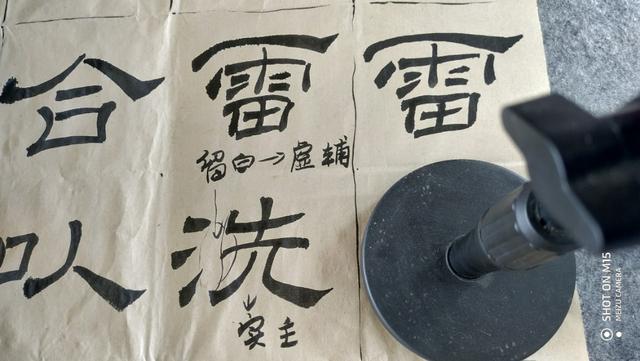 合 雷 雷
留白→虚辅
以 洗
实主
SHOT ON M15
MEIZU CAMERA